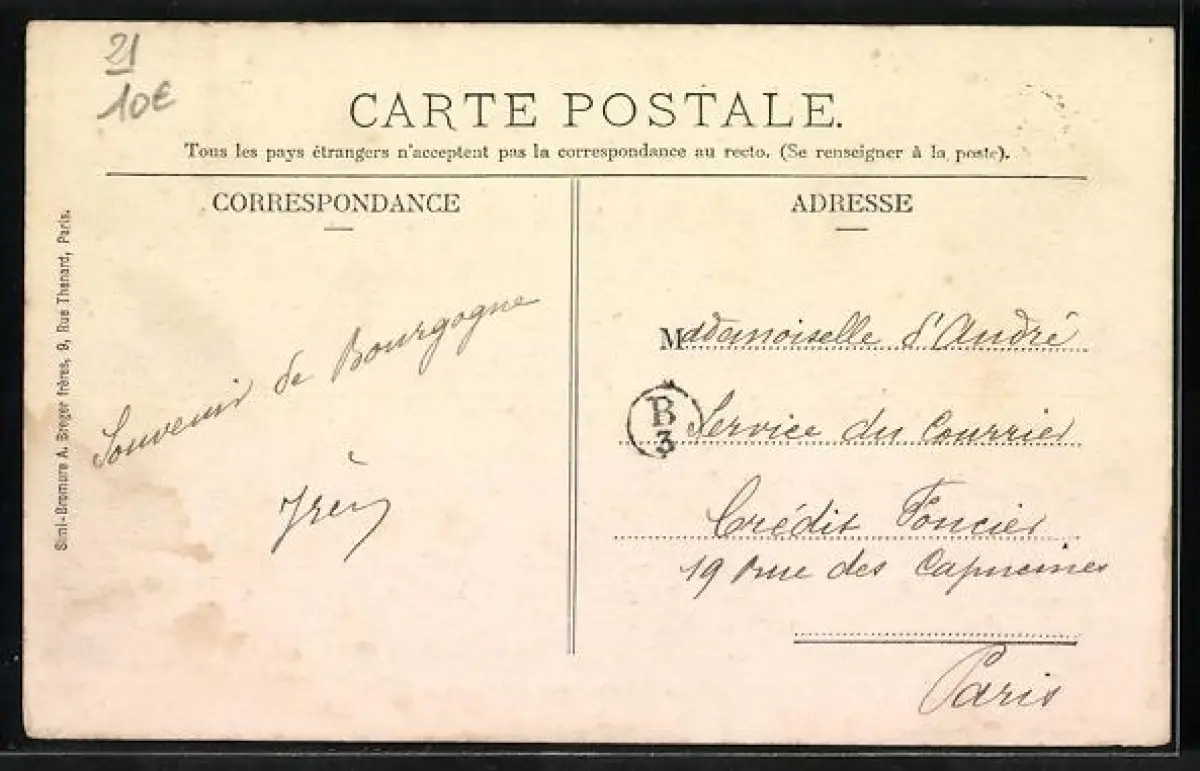 21
10€
CARTE POSTALE.
Tous les pays étrangers n'acceptent pas la correspondance au recto. (Se renseigner à la poste).
CORRESPONDANCE
Souvenir de Bourgogne
Simi-Bromure A. Breger frères, 9, Rue Thenard, Paris.
ADRESSE
Mademoiselle d'André
B
3
Service du Courrier
Crédit Foncier
19 rue des Capucines
Paris